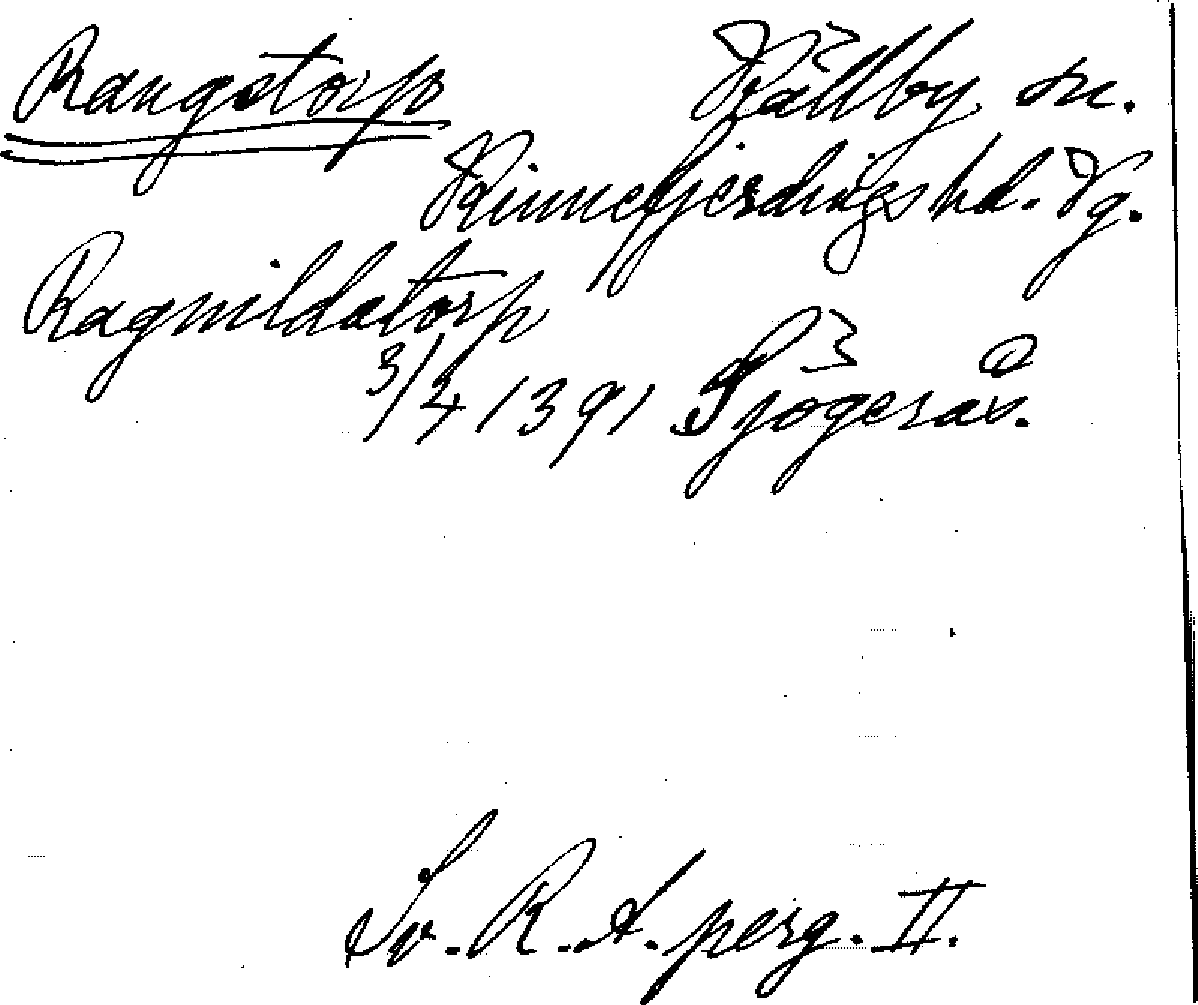 Rangstorp Källby sn.
Kinnefjerdings hd. Vg.
Ragnildatorp
3/4 1391 Sjögerås.
Sv. R. A. perg. II.